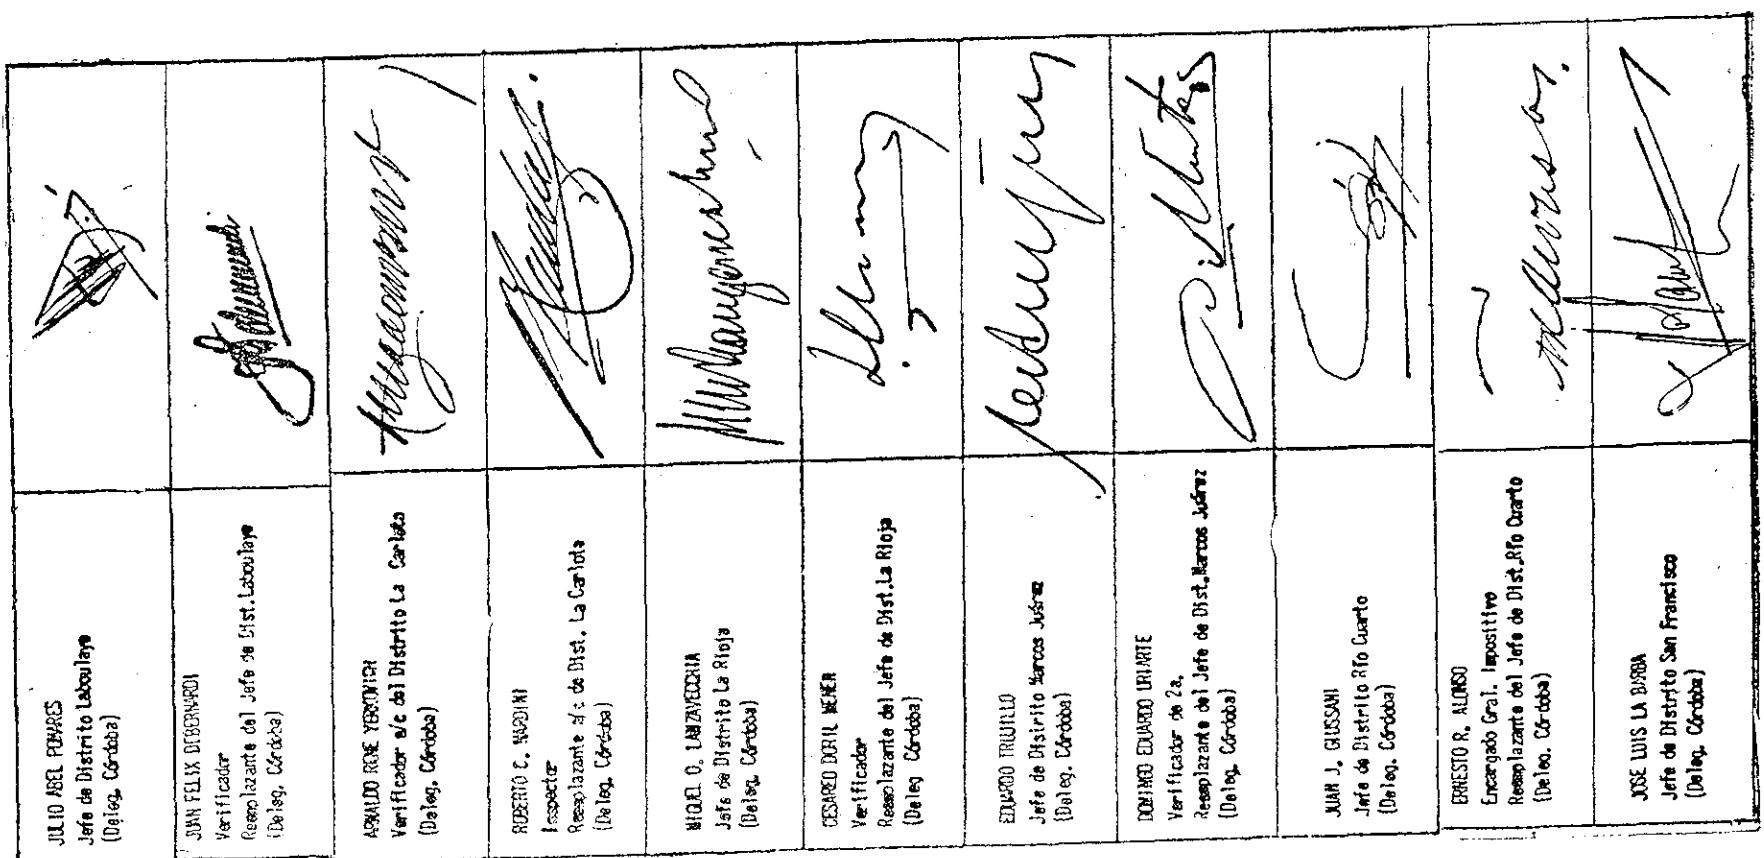 JULIO ABEL POMARES
Jefe de Distrito Laboulaye
(Deleg. Córdoba)
JUAN FELIX DEBERNARDI
Verificador
Reemplazante del Jefe de Dist.Laboulaye
(Deleg. Córdoba)
ARNALDO RENE YERCOVICH
Verificador a/c del Distrito La Carlota
(Deleg. Córdoba)
ROBERTO C. NARDINI
Inspector
Reemplazante a/c de Dist. La Carlota
(Deleg. Córdoba)
MIGUEL O. LANZAVECCHIA
Jefe de Distrito La Rioja
(Deleg. Córdoba)
CESAREO DORIL NEMER
Verificador
Reemplazante del Jefe de Dist.La Rioja
(Deleg. Córdoba)
EDUARDO TRUJILLO
Jefe de Disirito Marcos Juárez
(Deleg. Córdoba)
DOMINGO EDUARDO URIARTE
Verificador de 2a.
Reemplazante del Jefe de Dist.Marcos Juárez
(Deleg. Córdoba)
JUAN J. GIUSSANI
Jefe de Distrito Río Cuarto
(Deleg. Córdoba)
ERNESTO R. ALONSO
Encargado Gral. Impositivo
Reemplazante del Jefe de Dist.Río Cuarto
(Deleg. Córdoba)
JOSE LUIS LA BARBA
Jefe de Distrito San Francisco
(Deleg. Córdoba)